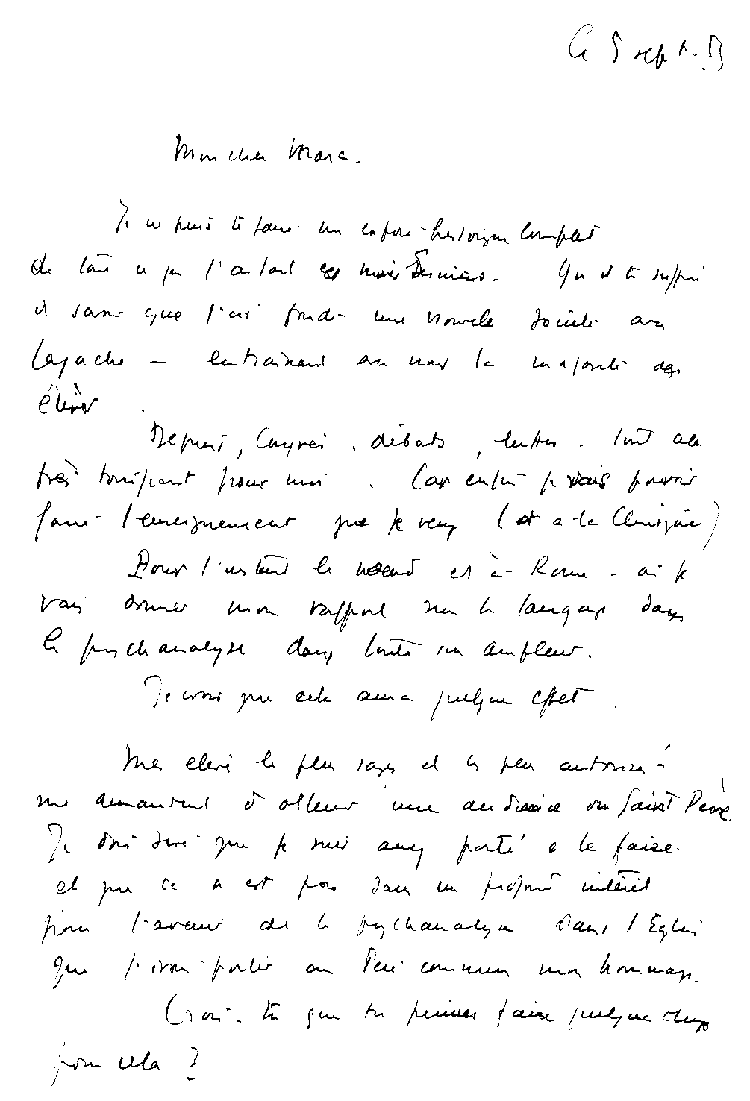 Ce 5 sept. 53
Mon cher Marc.
Je ne puis te faire un exposé historique complet
de tout ce que l'on a fait ces mois derniers. Qu'il te suffise
de savoir que j'ai fondé une nouvelle Société avec
Lagache – entraînant avec nous la majorité des
élèves
Depuis, Congrès, débats, luttes. Tout cela
très tonifiant pour moi. Car enfin je vais pouvoir
faire l'enseignement que je veux (et à la Clinique)
Pour l'instant le nœud est à Rome – où je
vais donner mon rapport sur le langage dans
la psychanalyse dans toute son ampleur.
Je crois que cela aura quelque effet.
Mes élèves les plus sages et les plus autorisés
me demandent d'obtenir une audience du Saint Père
Je dois dire que je suis assez porté à le faire
et que ce n'est pas sans un profond intérêt
pour l'avenir de la psychanalyse dans l'Eglise
que j'irai porter au Père commun mon hommage.
Crois-tu que tu puisses faire quelque chose
pour cela ?